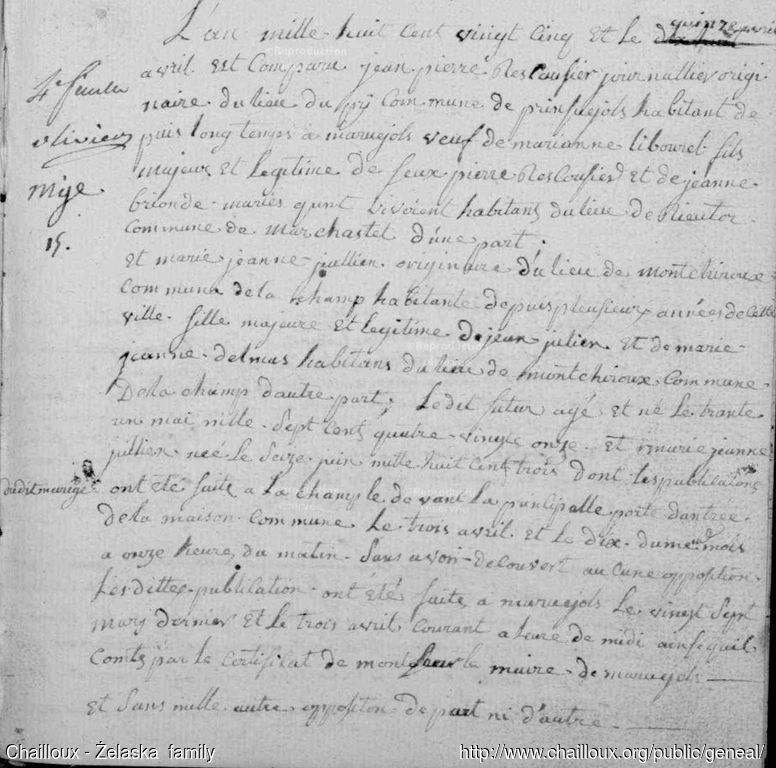 L'an mille huit cent vingt cinq et le quinze avril
avril est Comparu jean pierre Rescousier journallier origi
naire du lieu du py Commune de prinsuejols habitant de
puis long temps a maruejols veuf de marianne libourel fils
majeur et legitime de feux pierre Rescousier et de jeanne
brionde mariés qunt vivoient habitans du lieu de rieutor
Commune de marchastel d'une part.
et marie jeanne juillien originaire du lieu de montchiroux
Commune de la champ habitante depuis plusieurs années de cette
ville fille majeure et legitime de jean julien et de marie
jeanne delmas habitans du lieu de montchiroux Commune
De la champ d'autre part, Ledit futur agé et né le trante
un mai mille sept cents quatre vingt onze et marie jeanne
jullien neé le seize juin mille huit cent trois dont les publications
dudit mariage
ont eté faite a La champ le devant La principalle porte dantreé
de la maison Commune Le trois avril et le dix dume mois
a onze heure du matin sans avoir decouvert aucune opposition
Les dittes publication ont été faite a maruejols le vingt sept
mars dernier et le trois avril courant a leure de midi ainse quil
Conts par le certificat de monsieur le maire de maruejols
et sans nulle autre oppositon de part ni d'autre
olivier
mije
15.
Chailloux - Želaska family
http://www.chailloux.org/public/geneal/